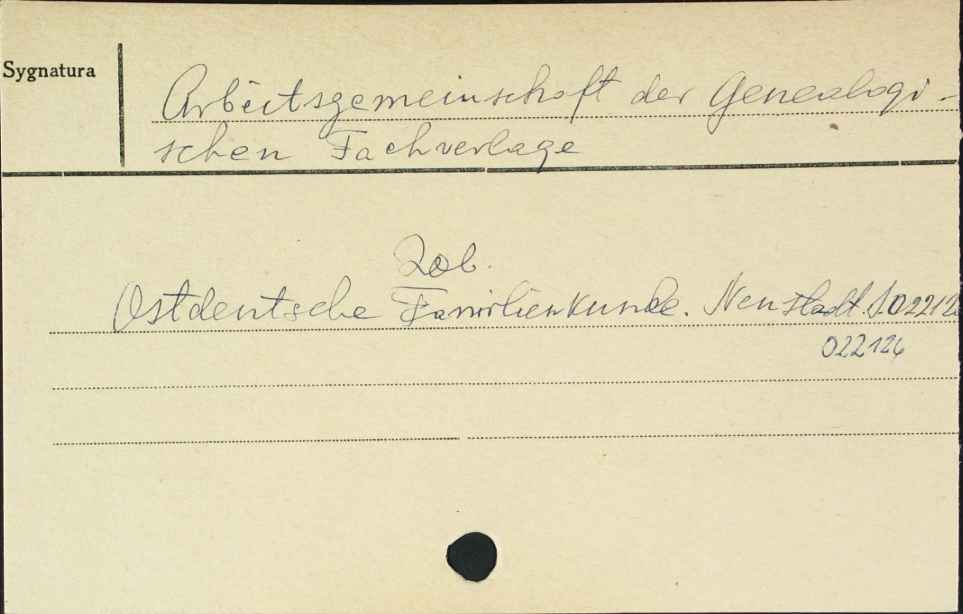 Sygnatura
Arbeitsgemeinschaft der Genealogi-
schen Fachverlage
Zob.
Ostdeutsche Familienkunde. Neustadt.
022126